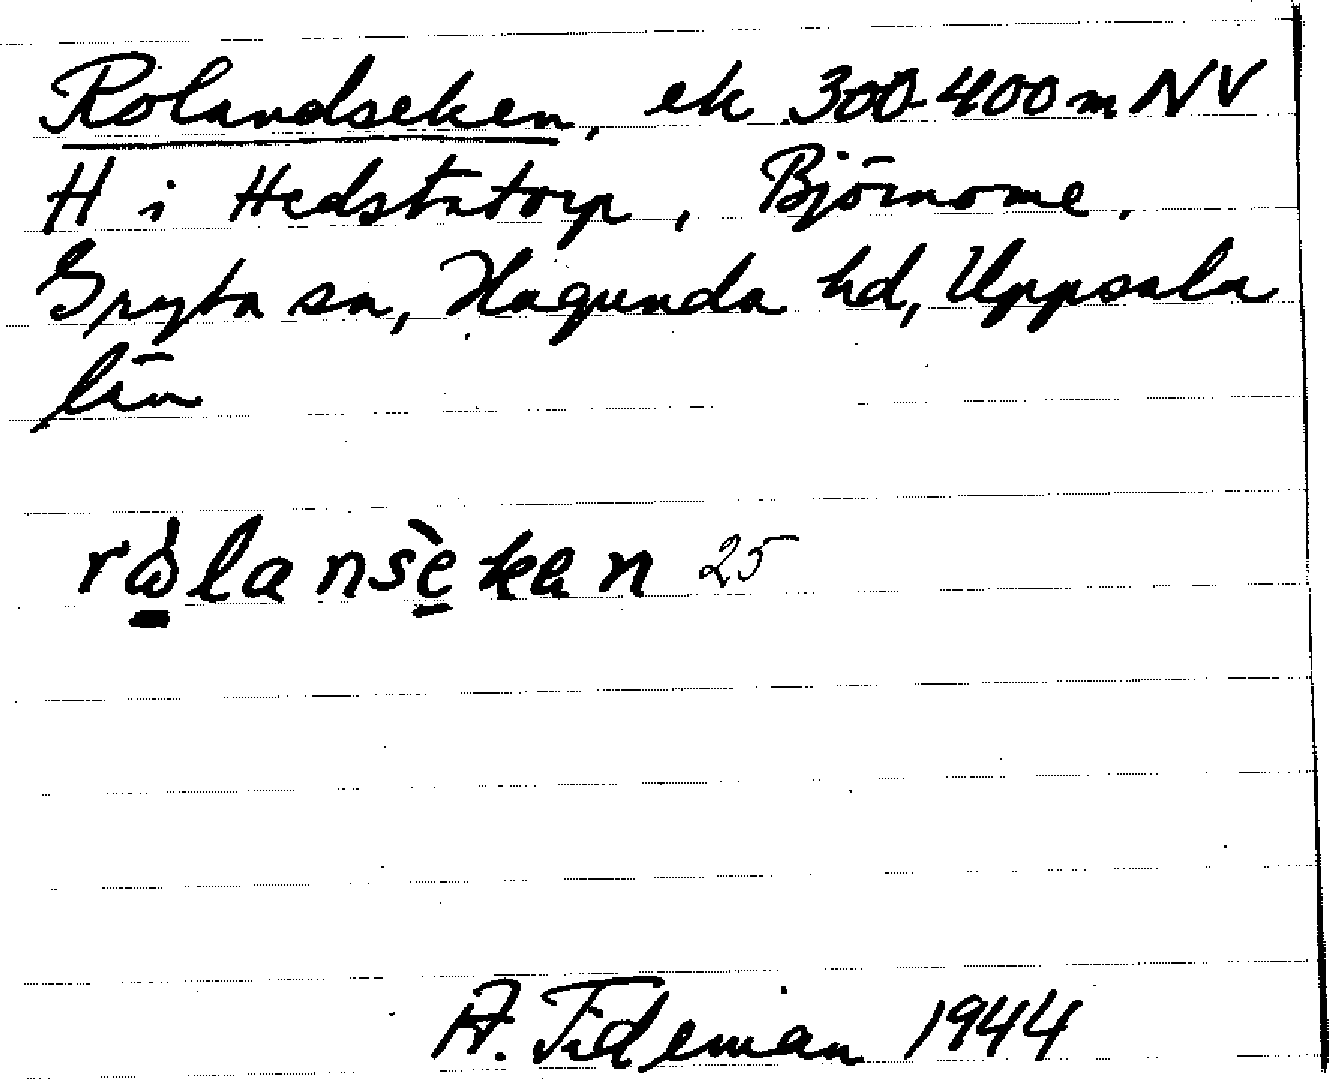 Rolandseken, ek 300-400 m NV
H i Hedstatorp, Björnome.
Gryta sn, Hagunda hd, Uppsala
län
rὼlansèkan 25
A. Tideman 1944